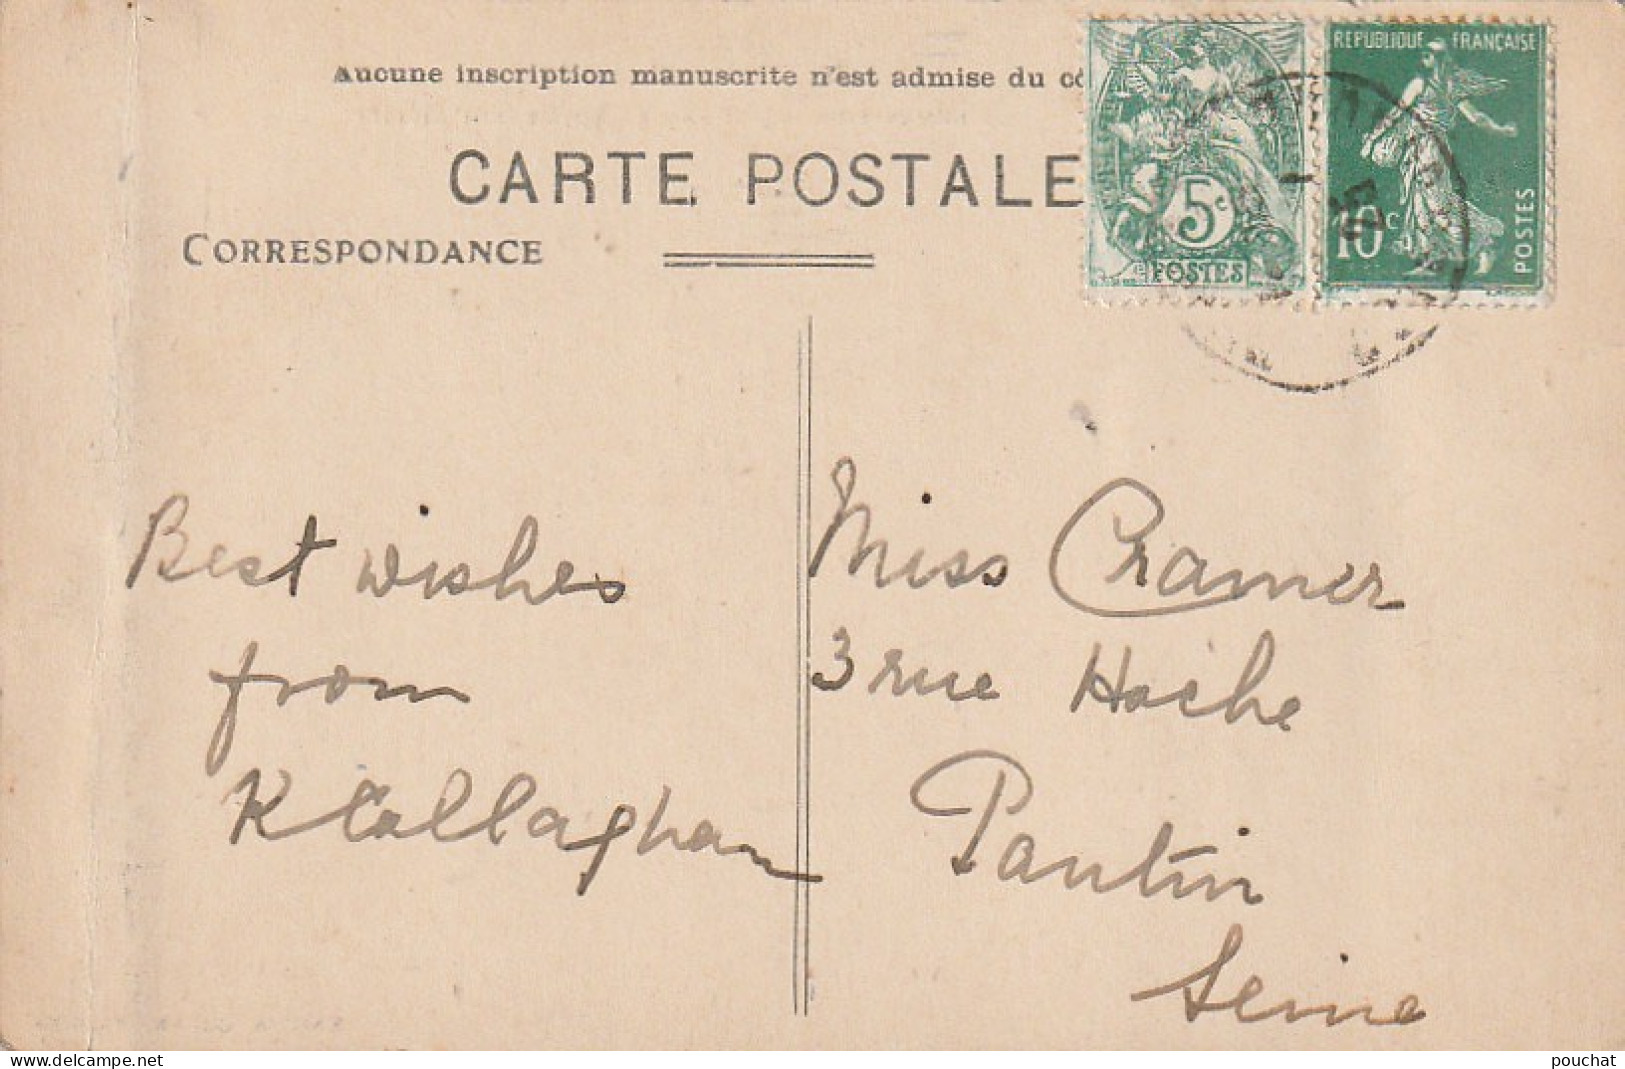 Aucune inscription manuscrite n'est admise du cô
CARTE POSTALE
CORRESPONDANCE
5c
POSTES
REPUBLIQUE FRANÇAISE
10c
POSTES
Best wishes
from
K Callaghan
Miss Cramer
3 rue Hoche
Pantin
Seine
delcampe.net
pouchat